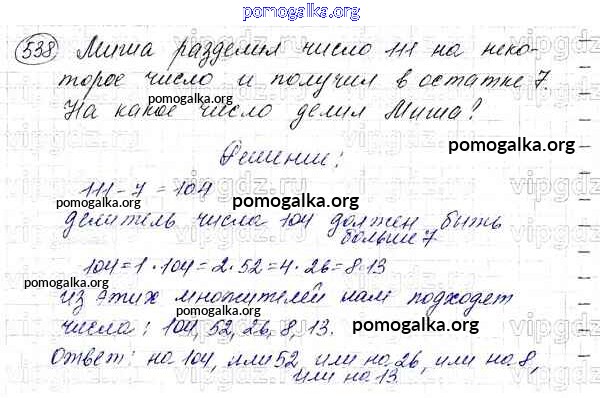 pomogalka.org
538 Миша разделил число 111 на неко-
торое число и получил в остатке 7.
На какое число делил Миша?
pomogalka.org
pomogalka.org
Решение:
pomogalka.org
111-7=104
pomogalka.org
pomogalka.org
делитель числа 104 должен быть
больше 7
104=1·104=2·52=4·26=8·13
pomogalka.org
из этих множителей нам подходят
числа: 104, 52, 26, 8, 13.
pomogalka.org
Ответ: на 104, или 52, или на 26, или на 8,
или на 13
pomogalka.org